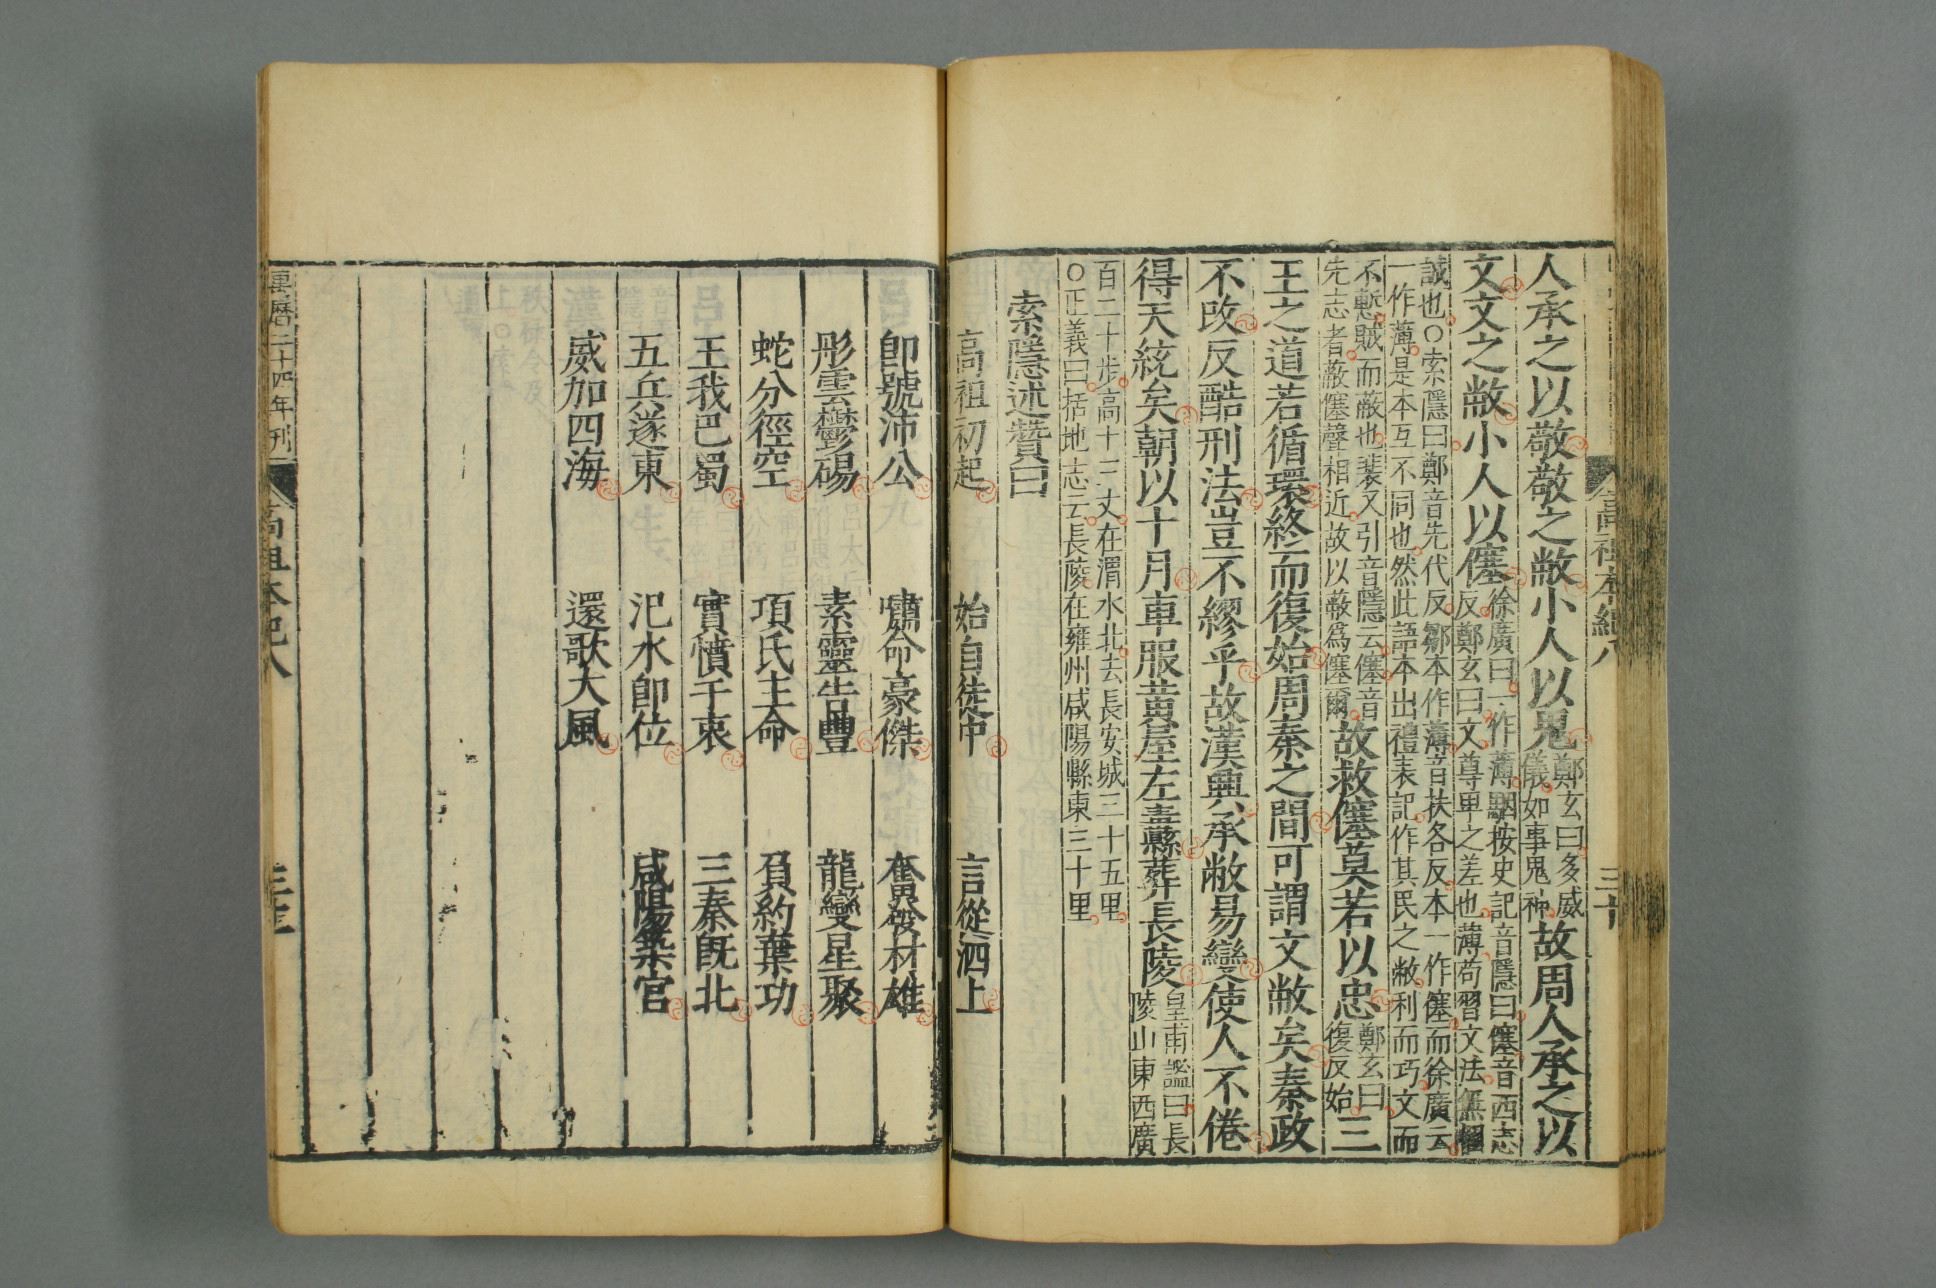 人承之以敬敬之敝小人以鬼
鄭玄曰多威
儀如事鬼神
故周人承之以
文文之敝小人以僿
徐廣曰一作薄駰按史記音隱曰僿音西志
反鄭玄曰文尊卑之差也薄苟習文法無
誠也○索隱曰鄭音先代反鄒本作薄音扶各反本一作僿而徐廣云
一作薄是本互不同也然此語本出禮表記作其民之敝利而巧文而
不慙賊而蔽也裴又引音隱云僿音
先志者蔽僿聲相近故以蔽爲僿爾
故救僿莫若以忠
鄭玄曰
復反始
三
王之道若循環終而復始周秦之間可謂文敝矣秦政
不改反酷刑法豈不繆乎故漢興承敝易變使人不倦
得天統矣朝以十月車服黃屋左纛葬長陵
皇甫謐曰長
陵山東西廣
百二十步高十三丈在渭水北去長安城三十五里
○正義曰括地志云長陵在雍州咸陽縣東三十里
索隱述贊曰
高祖初起 始自徒中 言從泗上
卽號沛公 嘯命豪傑 奮發材雄
彤雲鬱碭 素靈告豐 龍變星聚
蛇分徑空 項氏主命 負約棄功
王我巴蜀 實憤于衷 三秦旣北
五兵遂東 汜水卽位 咸陽築宮
威加四海 還歌大風
萬曆二十四年刊
高祖本紀八